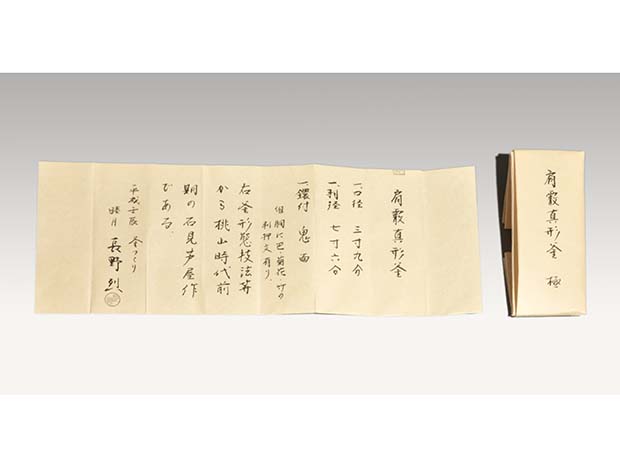 肩霰真形釜 極
肩霰真形釜
一、口径 三寸九分
一、径 七寸六分
一、鐶付 鬼面
但胴に巴菊花竹の
押文有り、
右釜形態技法等
から桃山時代前
期の石見芦屋作
である、
平成壬辰 釜つくり
睦月 長野烈